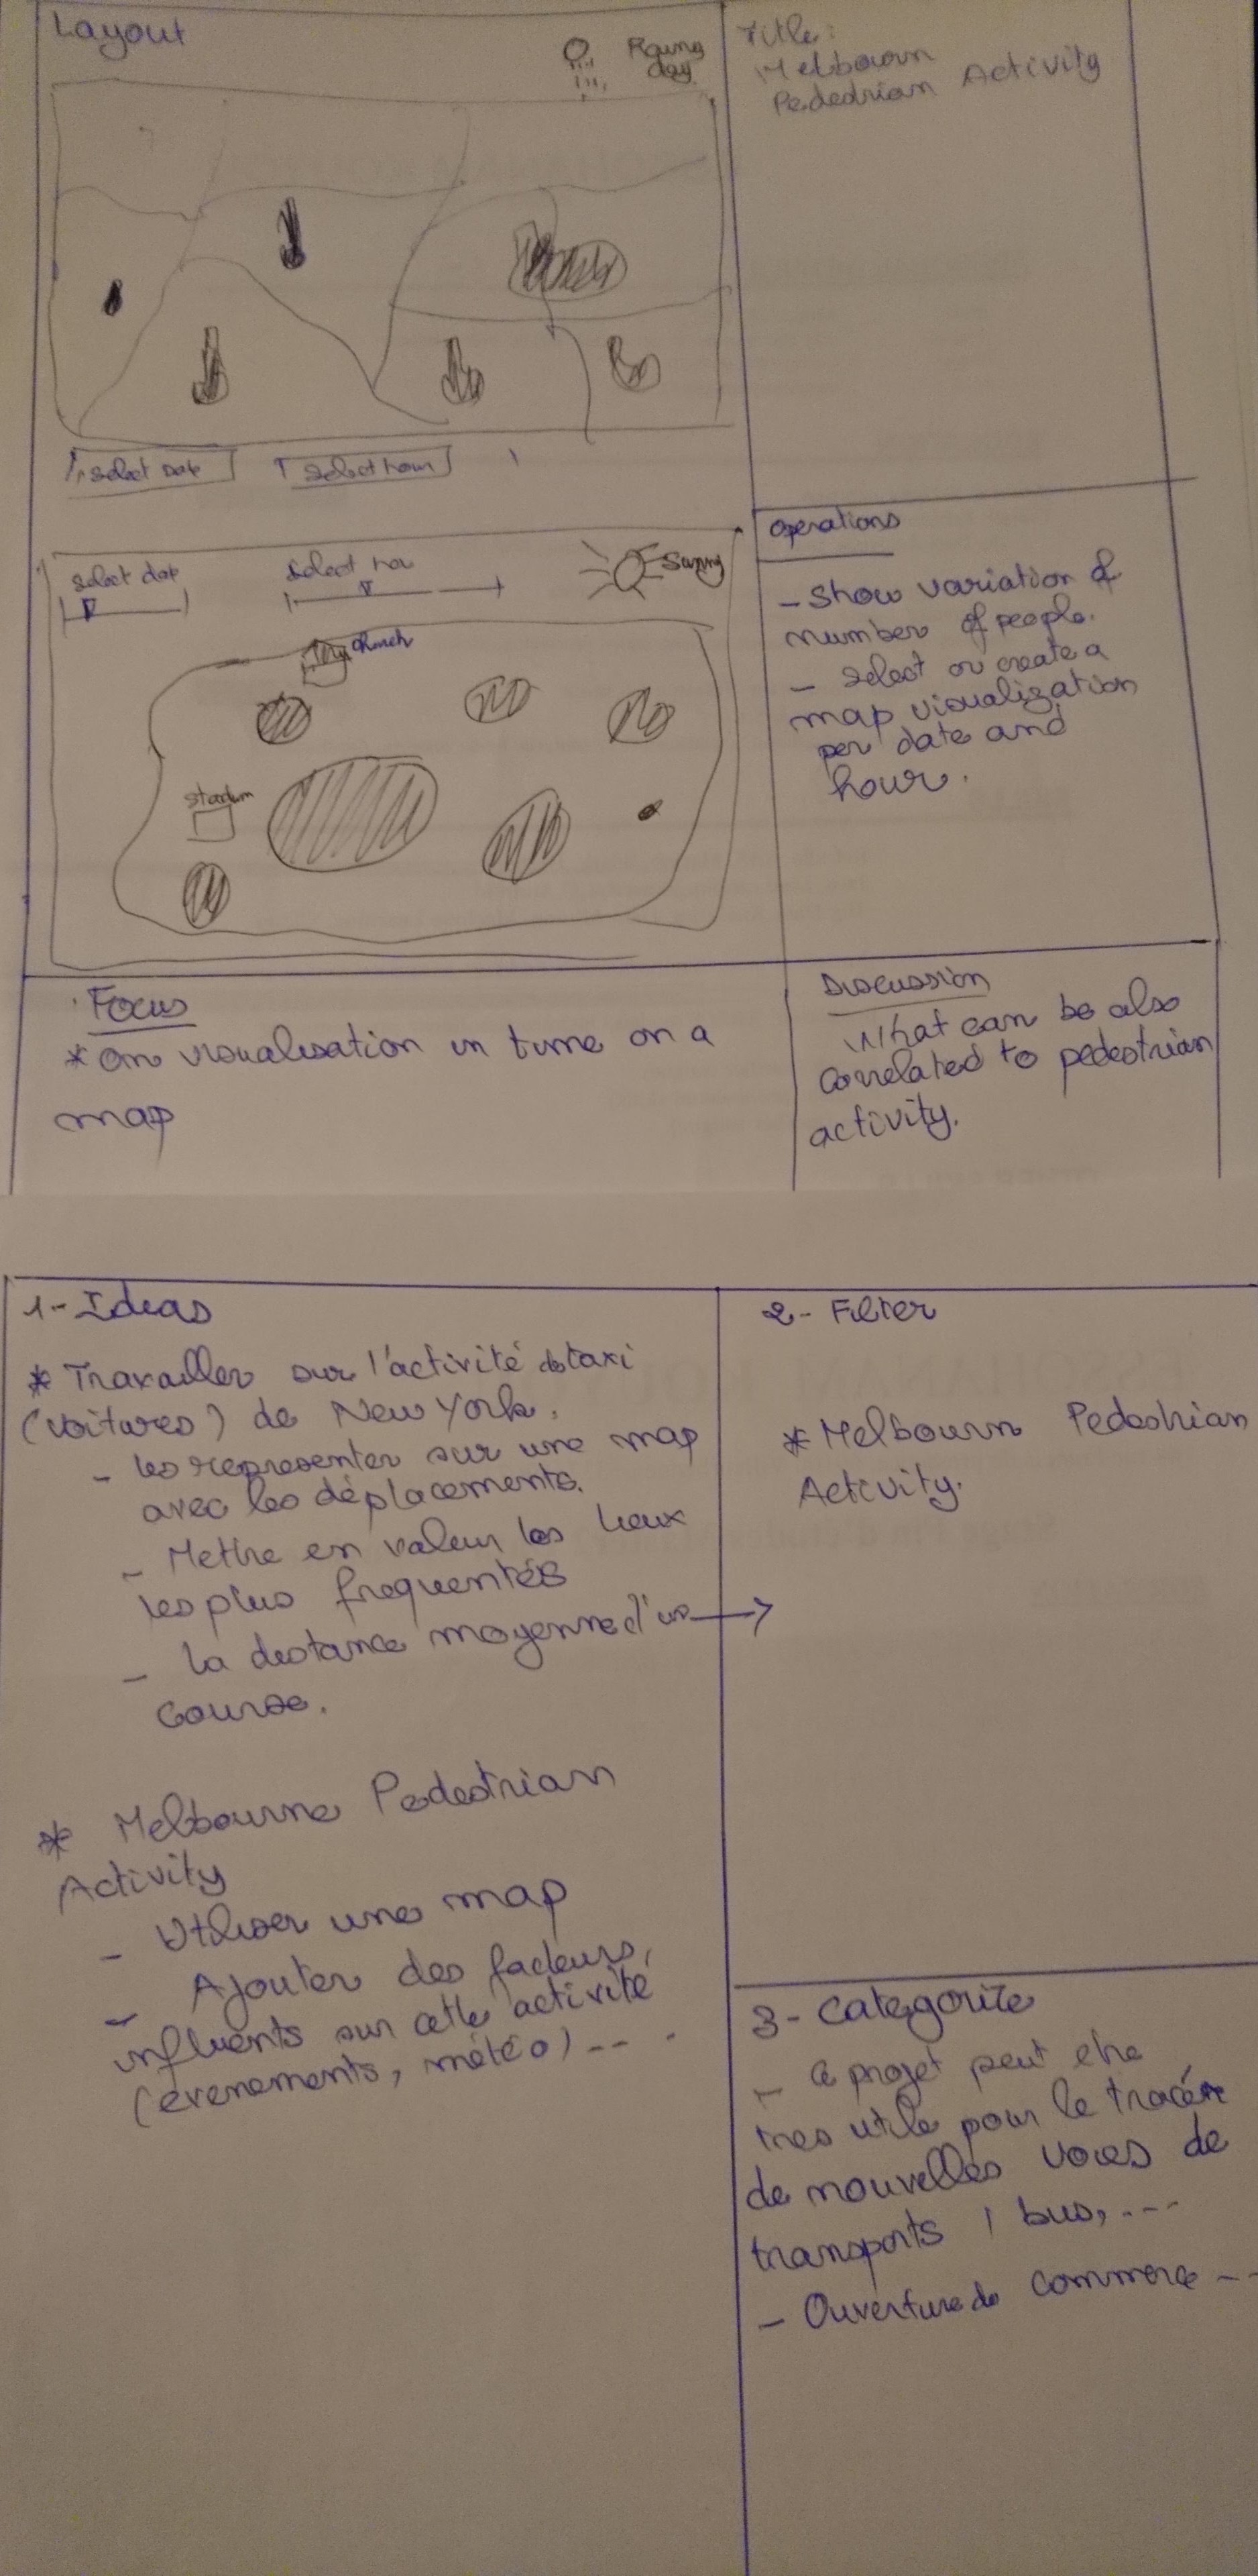 Layout
Rainy
day
Title:
Melbourn
Pededrian Activity
select Date
select hour
select date
select hou
Sunny
church
stadium
Operations
- Show variation of
number of people.
- select or create a
map visualization
per date and
hour.
Focus
* On visualisation in time on a
map
Discussion
What can be also
correlated to pedestrian
activity.
1- Ideas
* Travailler sur l'activité de taxi
(voitures) de New York.
- les representer sur une map
avec les déplacements.
- Mettre en valeur les lieux
les plus frequentés
- la distance moyenne d'une
course.
* Melbourne Pedestrian
Activity
- Utiliser une map
- Ajouter des facteurs,
influents sur cette activité
(évenements, météo) -- -
2- Filter
* Melbourn Pedestrian
Activity.
3- Categorize
- Ce projet peut etre
tres utile pour le tracer
de nouvelles voies de
transports, bus, ---
- Ouverture de commerce --